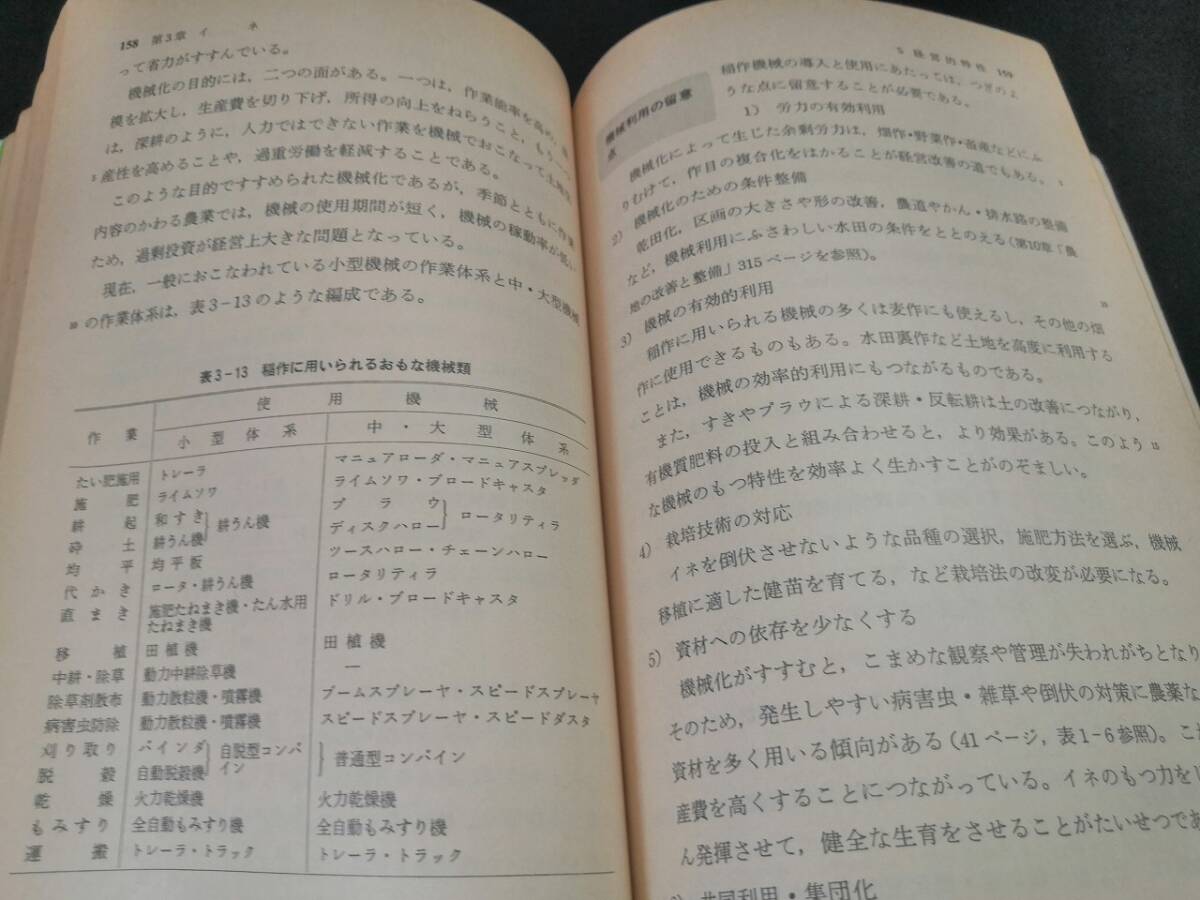 158 第3章 イ ネ
って省力がすすんでいる。
機械化の目的には，二つの面がある。一つは，作業能率を高め，
模を拡大し，生産費を切り下げ，所得の向上をねらうこと，もう一つ
は，深耕のように，人力ではできない作業を機械でおこなって土地生
5 産性を高めることや，過重労働を軽減することである。
このような目的ですすめられた機械化であるが，季節とともに作業
内容のかわる農業では，機械の使用期間が短く，機械の稼動率が低い
ため，過剰投資が経営上大きな問題となっている。
現在，一般におこなわれている小型機械の作業体系と中・大型機械
10 の作業体系は，表3-13のような編成である。
表3-13 稲作に用いられるおもな機械類
作業 使用機械
小型体系 中・大型体系
たい肥施用 トレーラ マニュアローダ・マニュアスプレッダ
施肥 ライムソワ ライムソワ・ブロードキャスタ
耕起 和すき 耕うん機 プラウ ロータリティラ
砕土 耕うん機 ディスクハロー
均平 均平板 ツースハロー・チェーンハロー
代かき ロータ・耕うん機 ロータリティラ
直まき 施肥たねまき機・たん水用 ドリル・ブロードキャスタ
たねまき機
移植 田植機 田植機
中耕・除草 動力中耕除草機 —
除草剤散布 動力散粒機・噴霧機 ブームスプレーヤ・スピードスプレーヤ
病害虫防除 動力散粒機・噴霧機 スピードスプレーヤ・スピードダスタ
刈り取り バインダ 自脱型コンバイン 普通型コンバイン
脱穀 自動脱穀機
乾燥 火力乾燥機 火力乾燥機
もみすり 全自動もみすり機 全自動もみすり機
運搬 トレーラ・トラック トレーラ・トラック
5 経営的特性 159
機械利用の留意点
稲作機械の導入と使用にあたっては，つぎのよ
うな点に留意することが必要である。
1) 労力の有効利用
機械化によって生じた余剰労力は，畑作・野菜作・畜産などにふ
りむけて，作目の複合化をはかることが経営改善の道でもある。 5
2) 機械化のための条件整備
乾田化，区画の大きさや形の改善，農道やかん・排水路の整備
など，機械利用にふさわしい水田の条件をととのえる(第10章「農
地の改善と整備」315ページを参照)。
3) 機械の有効的利用 10
稲作に用いられる機械の多くは麦作にも使えるし，その他の畑
作に使用できるものもある。水田裏作など土地を高度に利用する
ことは，機械の効率的利用にもつながるものである。
また，すきやプラウによる深耕・反転耕は土の改善につながり，
有機質肥料の投入と組み合わせると，より効果がある。このよう 15
な機械のもつ特性を効率よく生かすことがのぞましい。
4) 栽培技術の対応
イネを倒伏させないような品種の選択，施肥方法を選ぶ，機械
移植に適した健苗を育てる，など栽培法の改変が必要になる。
5) 資材への依存を少なくする
機械化がすすむと，こまめな観察や管理が失われがちとなり
そのため，発生しやすい病害虫・雑草や倒伏の対策に農薬な
資材を多く用いる傾向がある(41ページ，表1-6参照)。こ
産費を高くすることにつながっている。イネのもつ力を
ん発揮させて，健全な生育をさせることがたいせつであ
共同利用・集団化